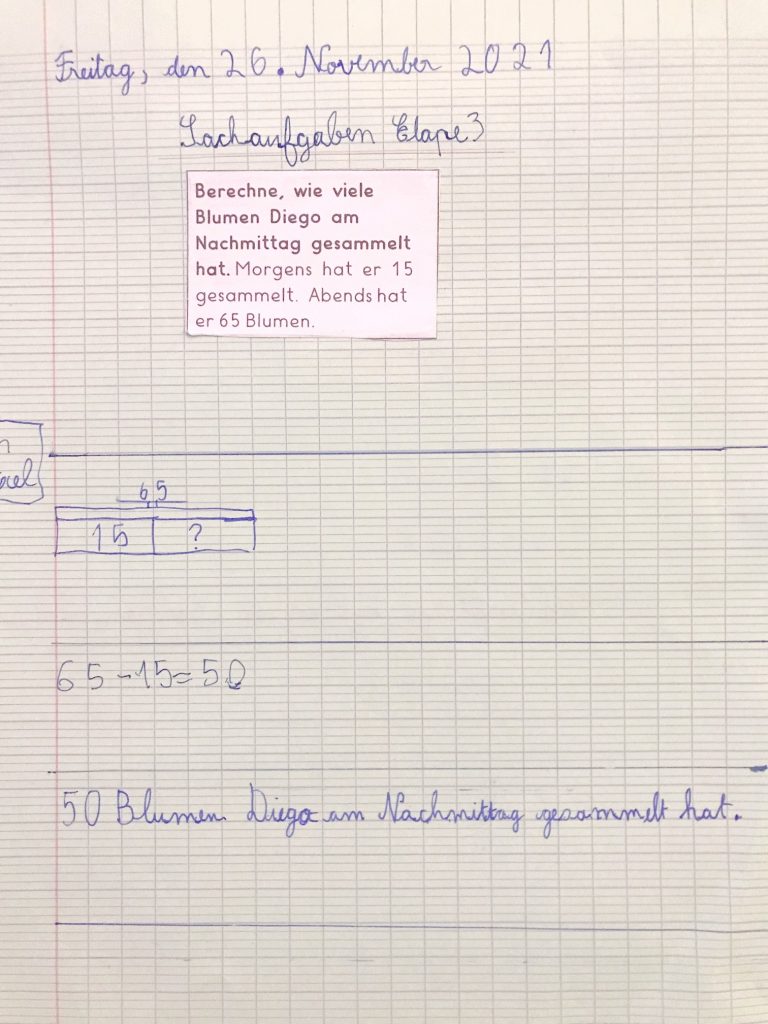 Freitag, den 26. November 2021
Sachaufgaben Etape 3
Berechne, wie viele
Blumen Diego am
Nachmittag gesammelt
hat. Morgens hat er 15
gesammelt. Abends hat
er 65 Blumen.
65
15 ?
65-15=50
50 Blumen Diego am Nachmittag gesammelt hat.